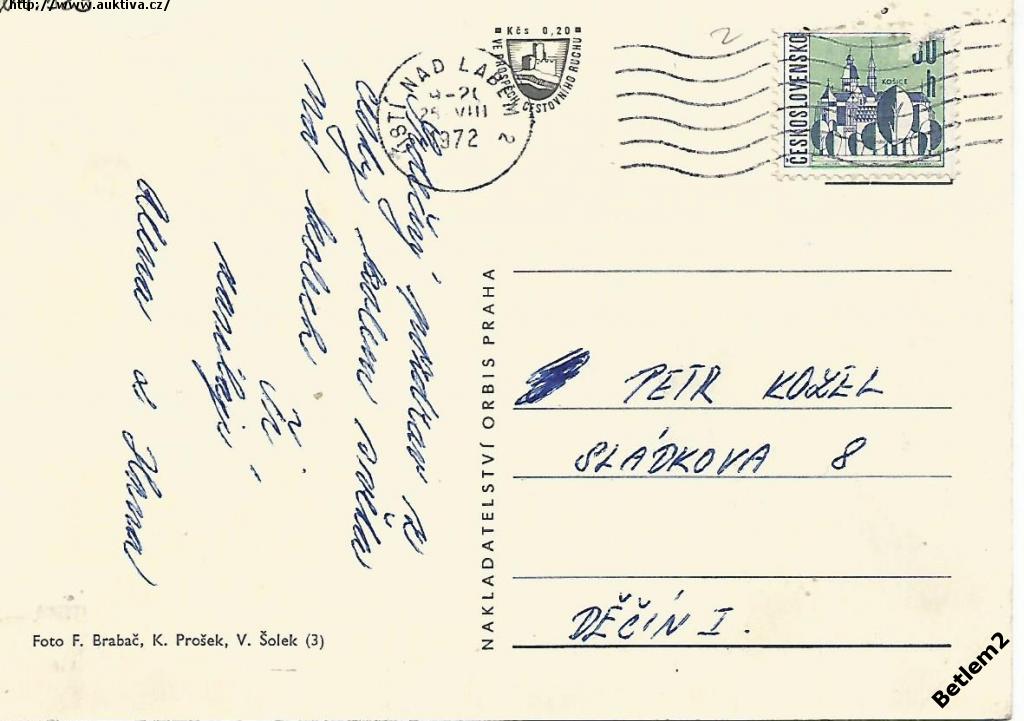 http://www.auktiva.cz/
Kčs 0,20
VE PROSPĚCH CESTOVNÍHO RUCHU
ÚSTÍ NAD LABEM 2
1972
ČESKOSLOVENSKO
30 h
KOŠICE
pozdrav z
cesty kolem světa
na kolech
a
NAKLADATELSTVÍ ORBIS PRAHA
PETR KOZEL
SLÁDKOVA 8
DĚČÍN I.
Foto F. Brabač, K. Prošek, V. Šolek (3)
Betlem2